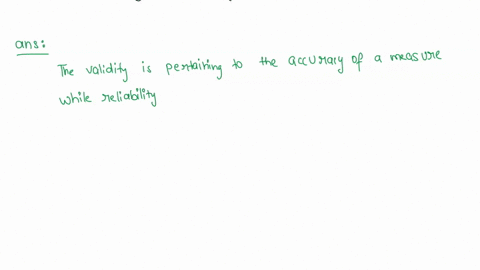 ans:
The validity is pertaining to the accuracy of a measure
while reliability